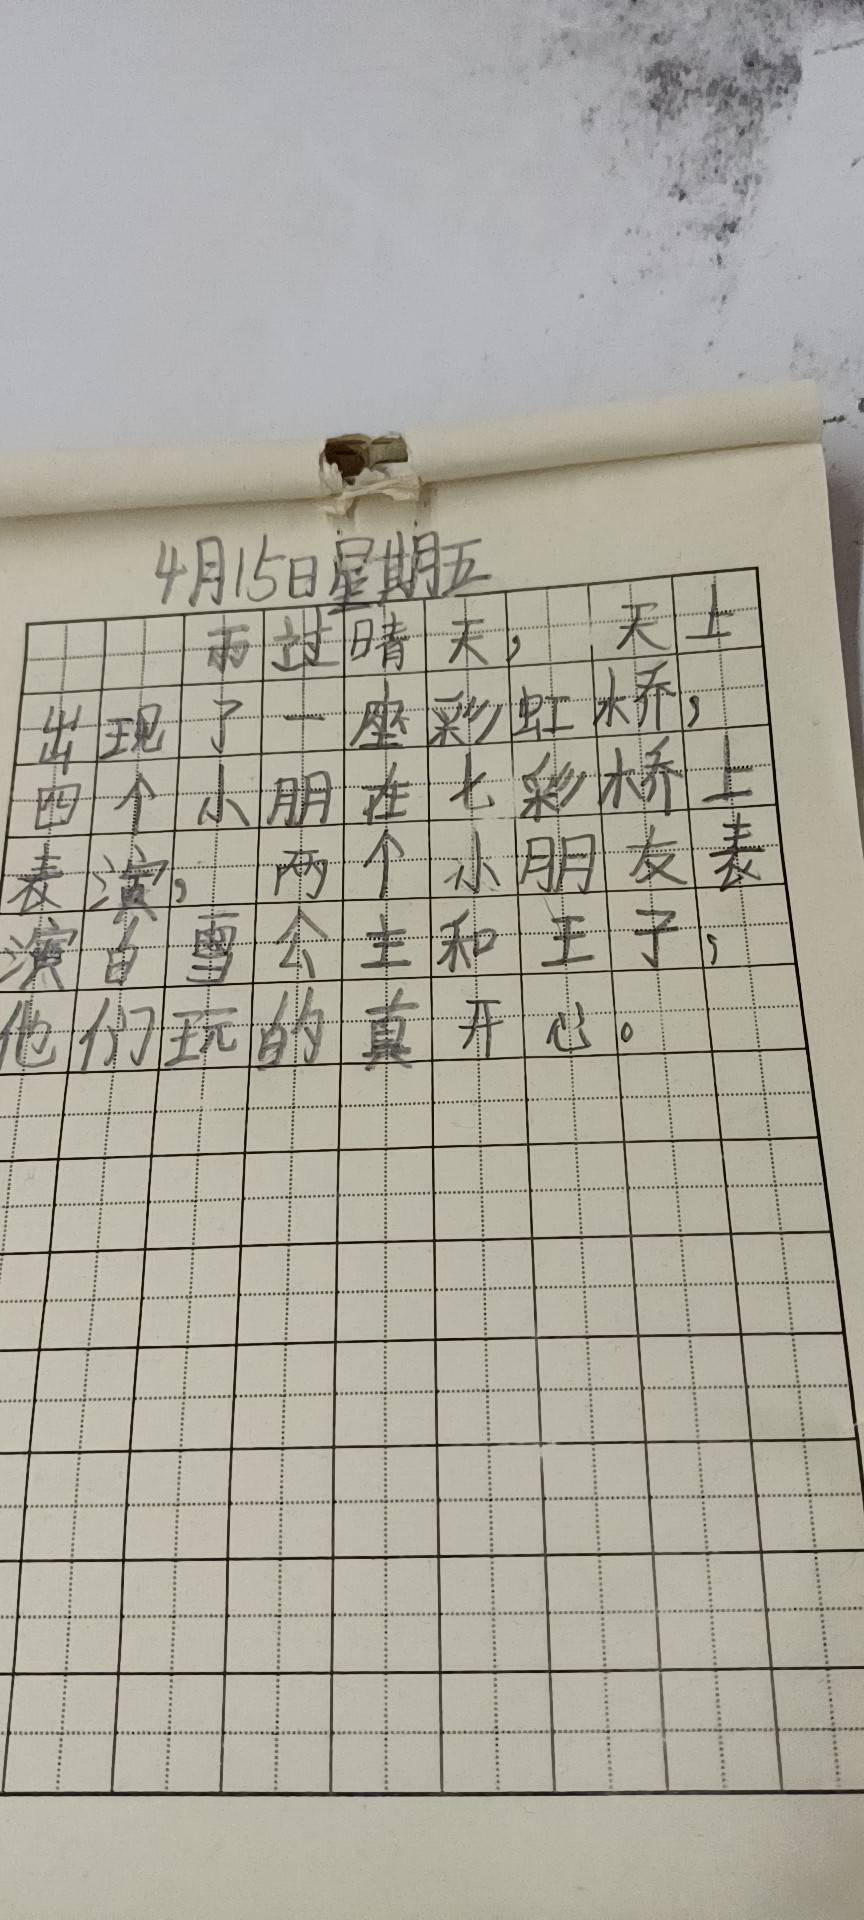 4月15日星期五
雨过晴天，天上
出现了一座彩虹桥，
四个小朋在七彩桥上
表演，两个小朋友表
演白雪公主和王子，
他们玩的真开心。